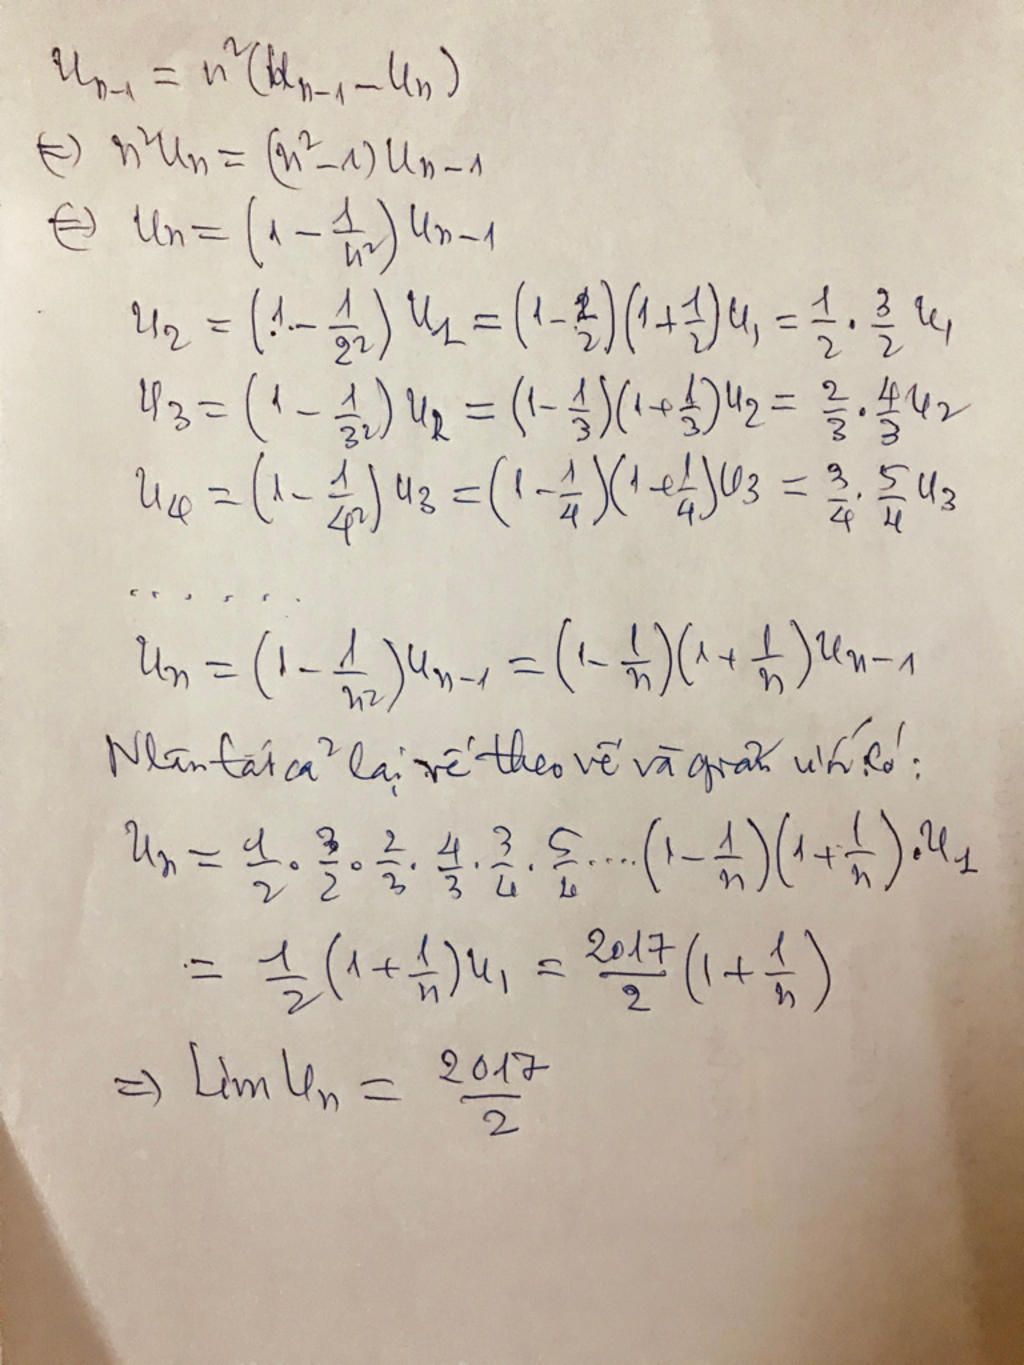 u_{n-1} = n²(u_{n-1} - u_n)
⇔ n²u_n = (n²-1)u_{n-1}
⇔ u_n = (1 - 1/n²)u_{n-1}
u_2 = (1 - 1/2²)u_1 = (1 - 1/2)(1 + 1/2)u_1 = 1/2 . 3/2 u_1
u_3 = (1 - 1/3²)u_2 = (1 - 1/3)(1 + 1/3)u_2 = 2/3 . 4/3 u_2
u_4 = (1 - 1/4²)u_3 = (1 - 1/4)(1 + 1/4)u_3 = 3/4 . 5/4 u_3
......
u_n = (1 - 1/n²)u_{n-1} = (1 - 1/n)(1 + 1/n)u_{n-1}
Nhân tất cả lại vế theo vế và giản ước có:
u_n = 1/2 . 3/2 . 2/3 . 4/3 . 3/4 . 5/4 .... (1 - 1/n)(1 + 1/n) . u_1
= 1/2 (1 + 1/n)u_1 = 2017/2 (1 + 1/n)
⇒ Lim u_n = 2017/2